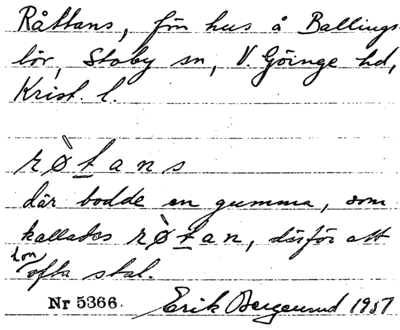 Råttans, förr hus å Ballings-
löv, Stoby sn, V. Göinge hd,
Krist. l.
rø̀tans
där bodde en gumma, som
kallades rø̀tan, därför att
hon ofta stal.
Nr 5366. Erik 1937